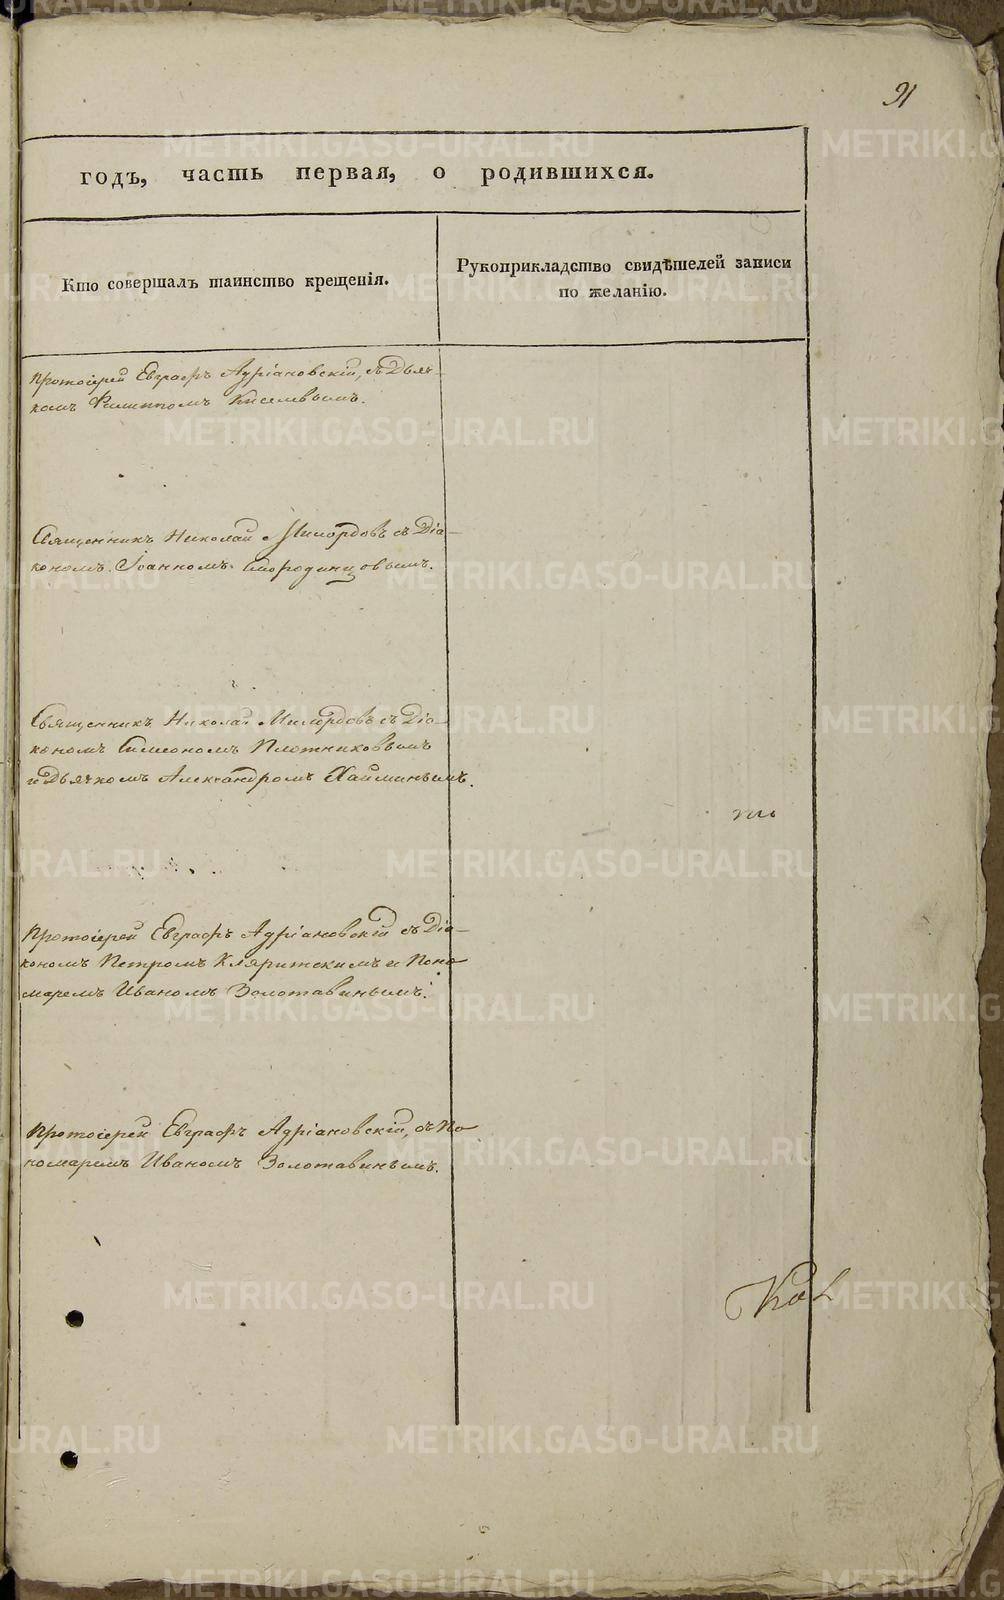 91
годъ, часть первая, о родившихся.
Кто совершалъ таинство крещенія.
Рукоприкладство свидѣтелей записи
по желанію.
Протоіерей Евграфъ Адріановскій, съ Дьяч-
комъ Филиппомъ Киселевымъ.
Священникъ Николай Милордовъ съ Діа-
кономъ Іоанномъ Смородинцовымъ.
Священникъ Николай Милордовъ съ Діа-
кономъ Симеономъ Плотниковымъ
и Дьячкомъ Александромъ Хайминымъ.
Протоіерей Евграфъ Адріановскій съ Діа-
кономъ Петромъ Кляритскимъ и Поно
маремъ Иваномъ Золотавинымъ.
Протоіерей Евграфъ Адріановскій, съ По
номаремъ Иваномъ Золотавинымъ.
METRIKI.GASO-URAL.RU